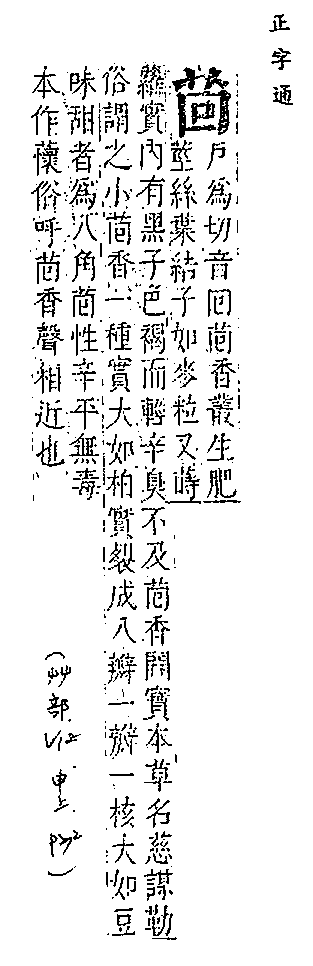 正字通
茴
戶爲切音回茴香叢生肥
莖絲葉結子如麥粒又蒔
蘿實內有黑子色褐而輕辛臭不及茴香開寶本草名慈謀勒
俗謂之小茴香一種實大如柏實裂成八瓣一瓣一核大如豆
味甜者爲八角茴性辛平無毒
本作蘹俗呼茴香聲相近也
(艸部
申上